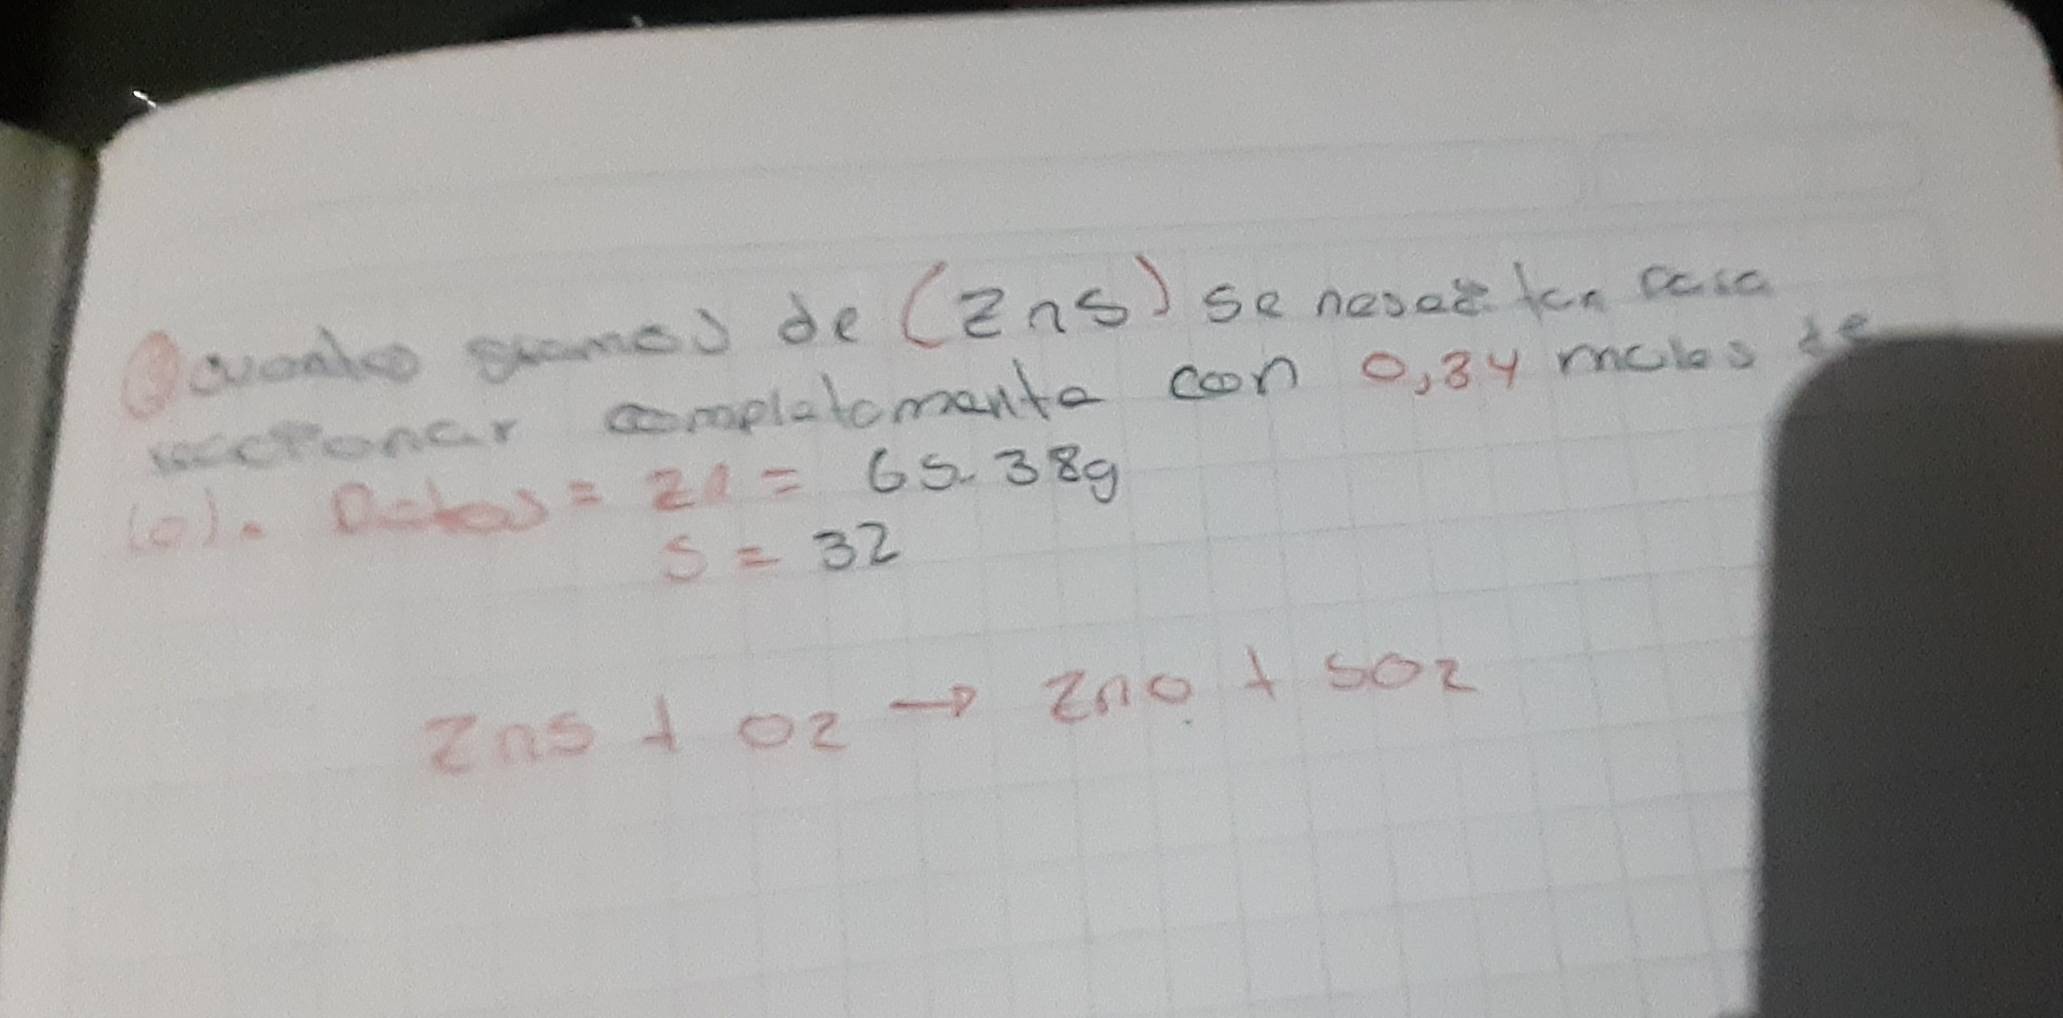 cuantos gramos de (ZnS) se nesesitan para
reaccionar completamente con 0,34 moles de
(o). Datos = Zn = 65.38g
S = 32
ZnS + O2 → ZnO + SO2